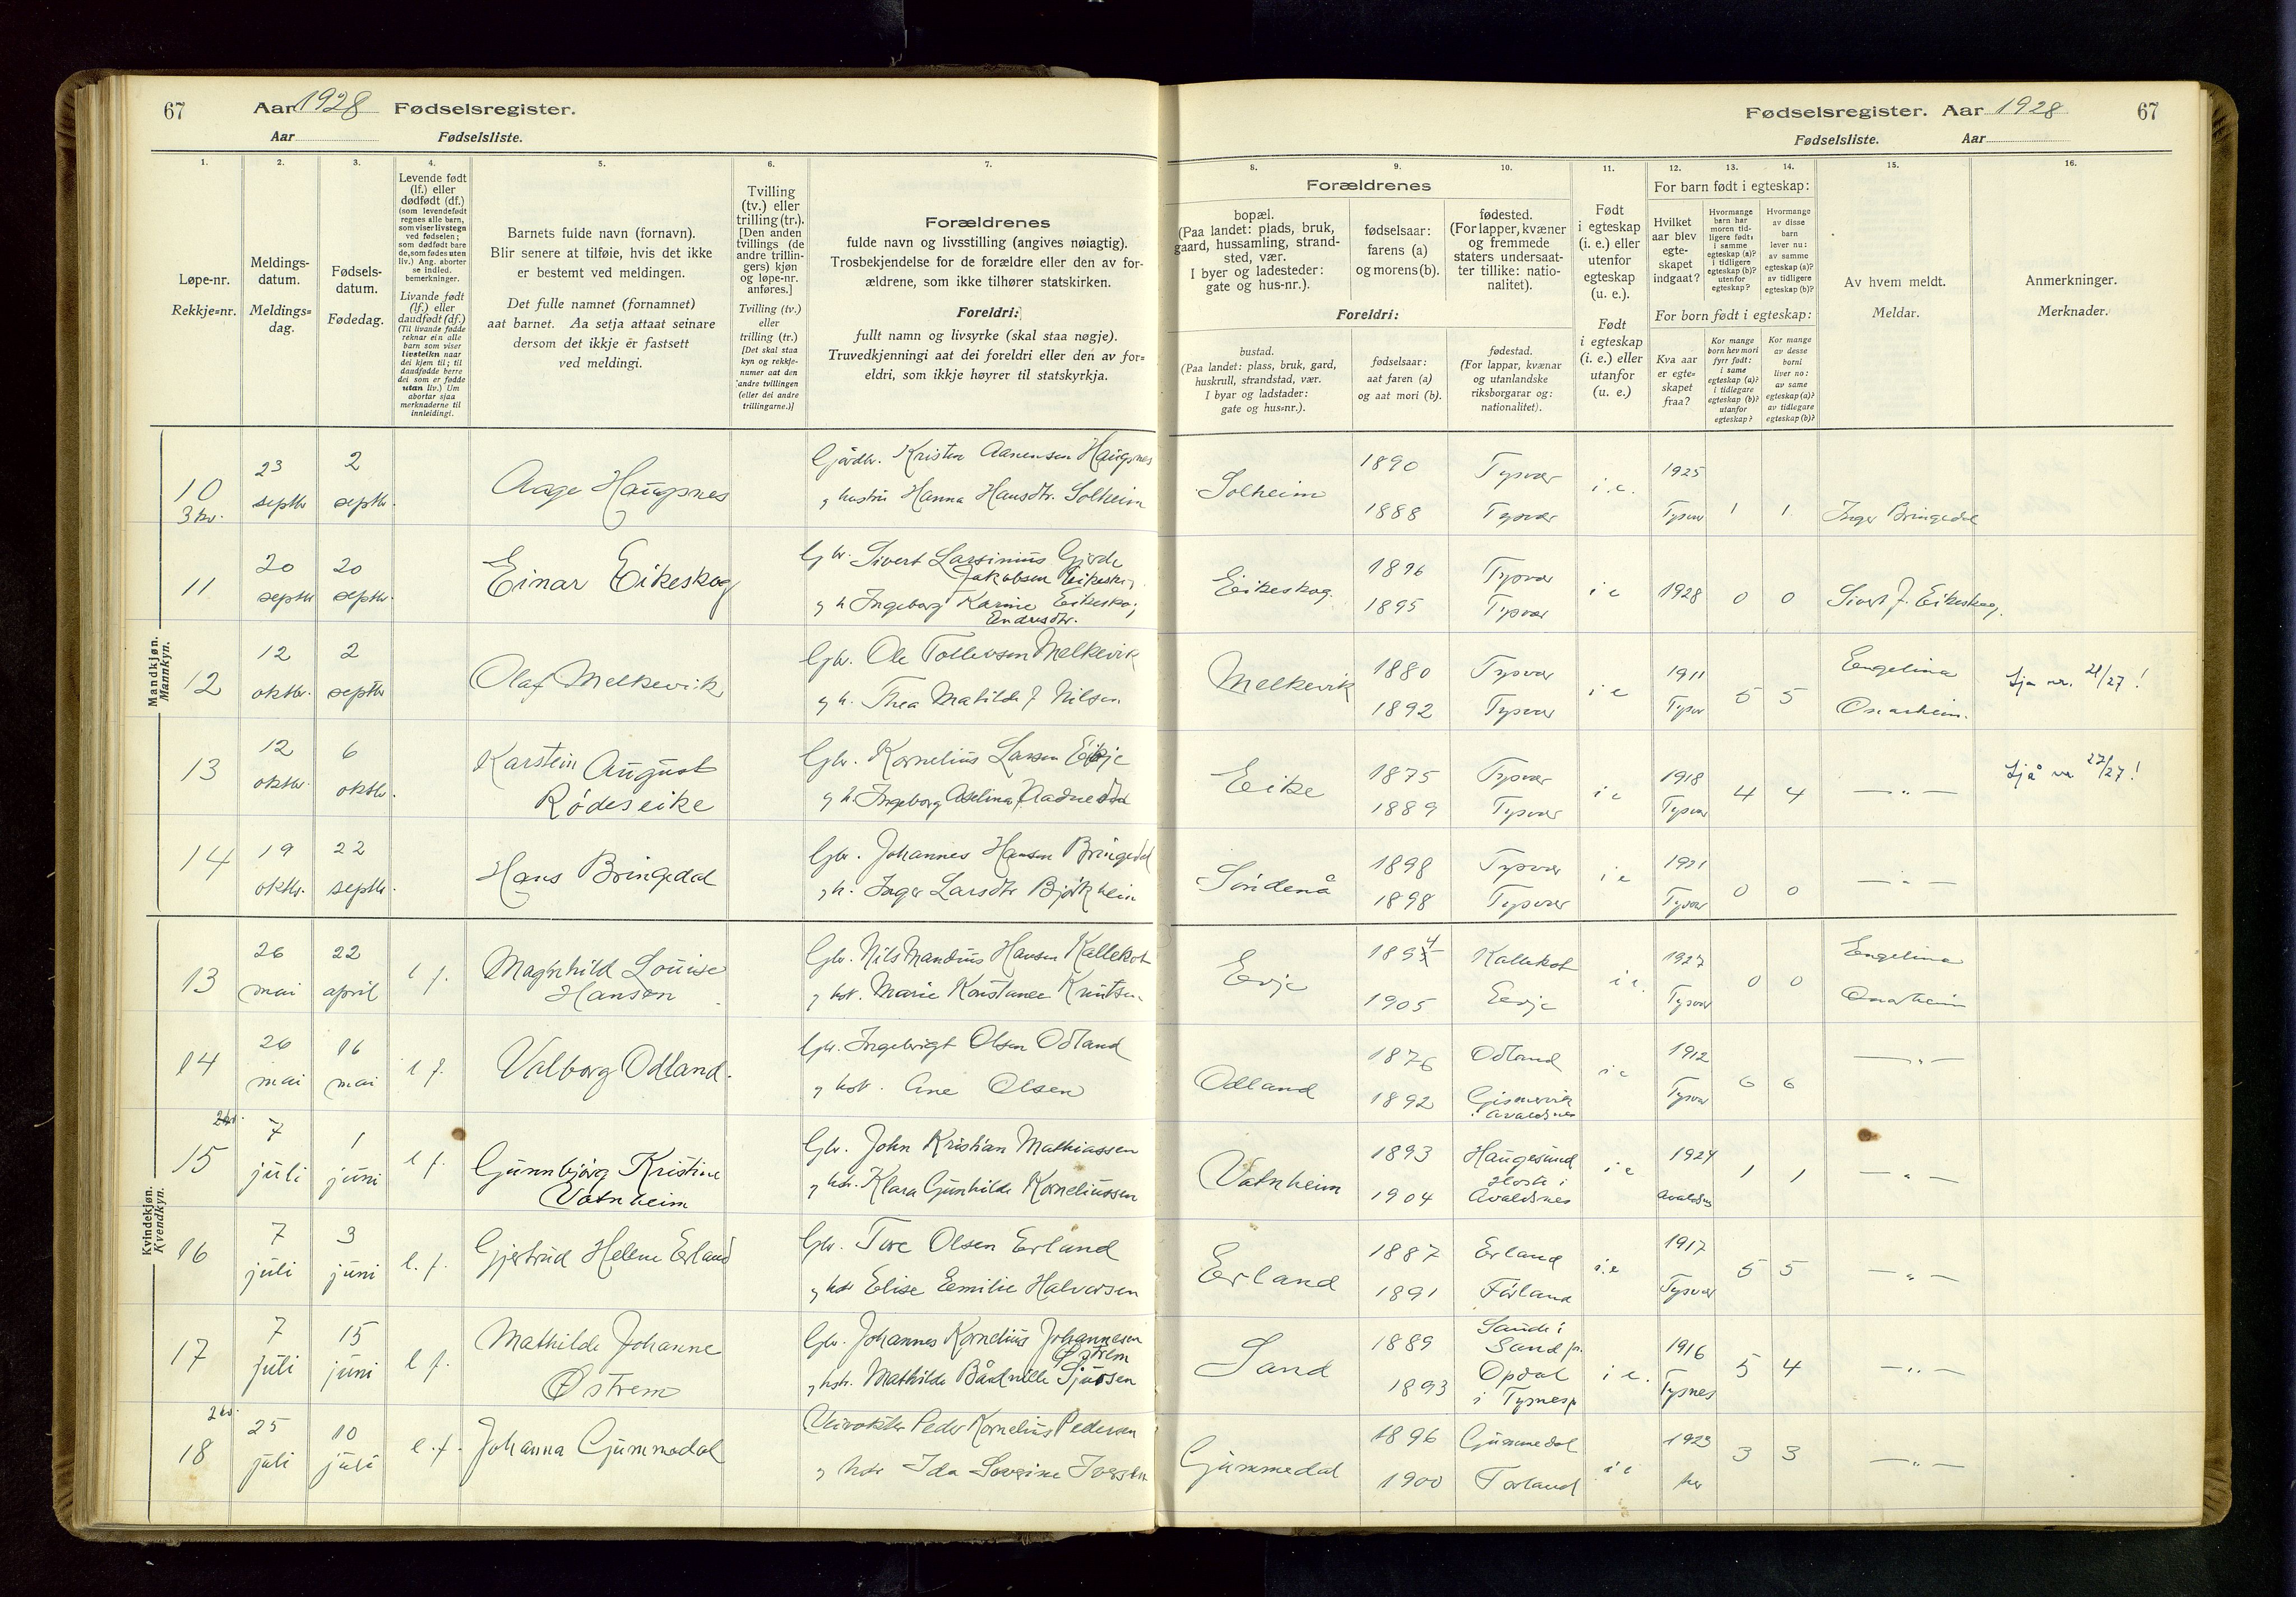 67 Aar 1928 Fødselsregister.
Aar Fødselsliste.
1. 2. 3. 4. 5. 6. 7.
Løpe-nr.
Rekkje=nr.
Meldings-
datum.
Meldings=
dag.
Fødsels-
datum.
Fødedag.
Levende født
(lf.) eller
dødfødt (df.)
(som levendefødt
regnes alle barn,
som viser livstegn
ved fødselen;
som dødfødt bare
de, som fødes uten
liv.) Ang. aborter
se indled.
bemerkninger.
Livande født
(lf.) eller
daudfødt (df.)
(Til livande fødde
reknar ein alle
barn som viser
livsteikn naar
dei kjem til; til
daudfødde berre
dei som er fødde
utan liv.) Um
abortar sjaa
merknaderne til
innleidingi.
Barnets fulde navn (fornavn).
Blir senere at tilføie, hvis det ikke
er bestemt ved meldingen.
Det fulle namnet (fornamnet)
aat barnet. Aa setja attaat seinare
dersom det ikkje er fastsett
ved meldingi.
Tvilling
(tv.) eller
trilling (tr.).
[Den anden
tvillings (de
andre trillin-
gers) kjøn
og løpe-nr.
anføres.]
Tvilling (tv.)
eller
trilling (tr.)
[Det skal staa
kyn og rekkje-
numer aat den
andre tvillingen
(eller dei andre
trillingarne.)]
Forældrenes
fulde navn og livsstilling (angives nøiagtig).
Trosbekjendelse for de forældre eller den av for-
ældrene, som ikke tilhører statskirken.
Foreldri:
fullt namn og livsyrke (skal staa nøgje).
Truvedkjenningi aat dei foreldri eller den av for=
eldri, som ikkje høyrer til statskyrkja.
Fødselsregister. Aar 1928 67
Fødselsliste. Aar
8. 9. 10. 11. 12. 13. 14. 15. 16.
Forældrenes
bopæl.
(Paa landet: plads, bruk,
gaard, hussamling, strand-
sted, vær.
I byer og ladesteder:
gate og hus-nr.).
fødselsaar:
farens (a)
og morens (b).
fødested.
(For lapper, kvæner
og fremmede
staters undersaat-
ter tillike: natio-
nalitet).
Foreldri:
bustad.
(Paa landet: plass, bruk, gard,
huskrull, strandstad, vær.
I byar og ladstader:
gate og hus=nr.).
fødselsaar:
aat faren (a)
og aat mori (b).
fødestad.
(For lappar, kvænar
og utanlandske
riksborgarar og:
nationalitet).
Født
i egteskap
(i. e.) eller
utenfor
egteskap
(u. e.).
Født
i egteskap
(i. e.) eller
utanfor
(u. e.)
For barn født i egteskap:
Hvilket
aar blev
egte-
skapet
indgaat?
Hvormange
barn har
moren tid-
ligere født:
i samme
egteskap (a)?
i tidligere
egteskap (b)?
utenfor
egteskap?
Hvormange
av disse
barn
lever nu:
av samme
egteskap (a)?
av tidligere
egteskap (b)?
For born født i egteskap:
Kva aar
er egte=
skapet
fraa?
Kor mange
born hev mori
fyrr født:
i same
egteskap (a)?
i tidlegare
egteskap (b)?
utanfor
egteskap?
Kor mange
av desse
borni
liver no:
av same
egteskap (a)?
av tidlegare
egteskap (b)?
Av hvem meldt.
Meldar.
Anmerkninger.
Merknader.
Mandkjøn.
Mannkyn.
10 23 2 Gårdbr. Kristen Aanensen Haugsnes 1890 Tysvær 1925
3 kv. septbr septbr. Aage Haugsnes g hustru Hanna Hansdtr. Solheim Solheim 1888 Tysvær i.e. Tysvær 1 1 Inger Bringedal
11 20 20 Einar Eikeskog Gbr. Sivert Larsinius Gjerde
Jakobsen Eikeskog
septbr septbr. g h Ingeborg Karine Eikeskog
Endresdtr. Eikeskog 1896 Tysvær 1895 Tysvær i e 1928 0 0 Sivert J. Eikeskog.
12 12 2 Olaf Melkevik Gbr. Ole Tollevsen Melkevik 1880 Tysvær 1911 Engelina Sja nr. 21/27!
oktbr. septbr g h. Thea Matilde J Nilsen Melkevik 1892 Tysvær i e Tysvær 5 5 Onarheim.
13 12 6 Karstein August Gbr. Kornelius Larsen 1875 Tysvær 1918 Sjå nr 22/27!
oktbr. oktbr. Rødeseike g h Ingeborg Aselina Aadnesdtr Eike 1889 Tysvær i e Tysvær 4 4 — " —
14 19 22 Hans Bringedal Gbr. Johannes Hansen Bringedal 1898 Tysvær 1921
oktbr. septbr. g h. Inger Larsdtr Bjørkhein Söndenå 1898 Tysvær i e Tysvær 0 0 — " —
Kvindekjøn.
Kvendkyn.
13 26 22 l f. Maghnhild Louise Gbr. Nils Mandius Hansen Kallekot 1894 Kallekot 1927 Engelina
mai april Hansen g hst. Marie Konstance Knutsen Evje 1905 Evje i e. Tysvær 0 0 Onarheim
14 26 16 l f. Valborg Odland. Gbr. Ingebrigt Olsen Odland 1876 Odland 1912 — " —
mai mai g hst. Ane Olsen Odland 1892 Gismervik
i Avaldsnes i e Tysvær 6 6
2 kv.
15 7 1 l f. Gunnbjørg Kristine Gbr. John Kristian Mathiassen 1893 Haugesund 1924
juli juni Vatnheim g hst. Klara Gunhilde Korneliussen Vatnheim 1904 Avaldsnes i e Avaldsnes 1 1 — " —
16 7 3 l. f. Gjertrud Helene Erland Gbr. Tore Olsen Erland 1887 Erland 1917
juli juni g hst Elise Emilie Halvorsen Erland 1891 Førland i.e Tysvær 5 5 — " —
17 7 15 l f. Mathilde Johanne Gbr. Johannes Kornelius Johannesen
Østrem 1889 Sande i
Sand p. 1916
juli juni Østrem g hst. Mathilde Bårdnille Sjursen Sand 1893 Opdal
i Tysnes p i e. Tysnes 5 4 — " —
2 kv.
18 25 10 l. f. Johanna Gummedal Veivokter Peder Kornelius Pedersen 1896 Gummedal 1923
juli juli g hst Ida Severine Iversen Gummedal 1900 Førland i e her 3 3 — " —